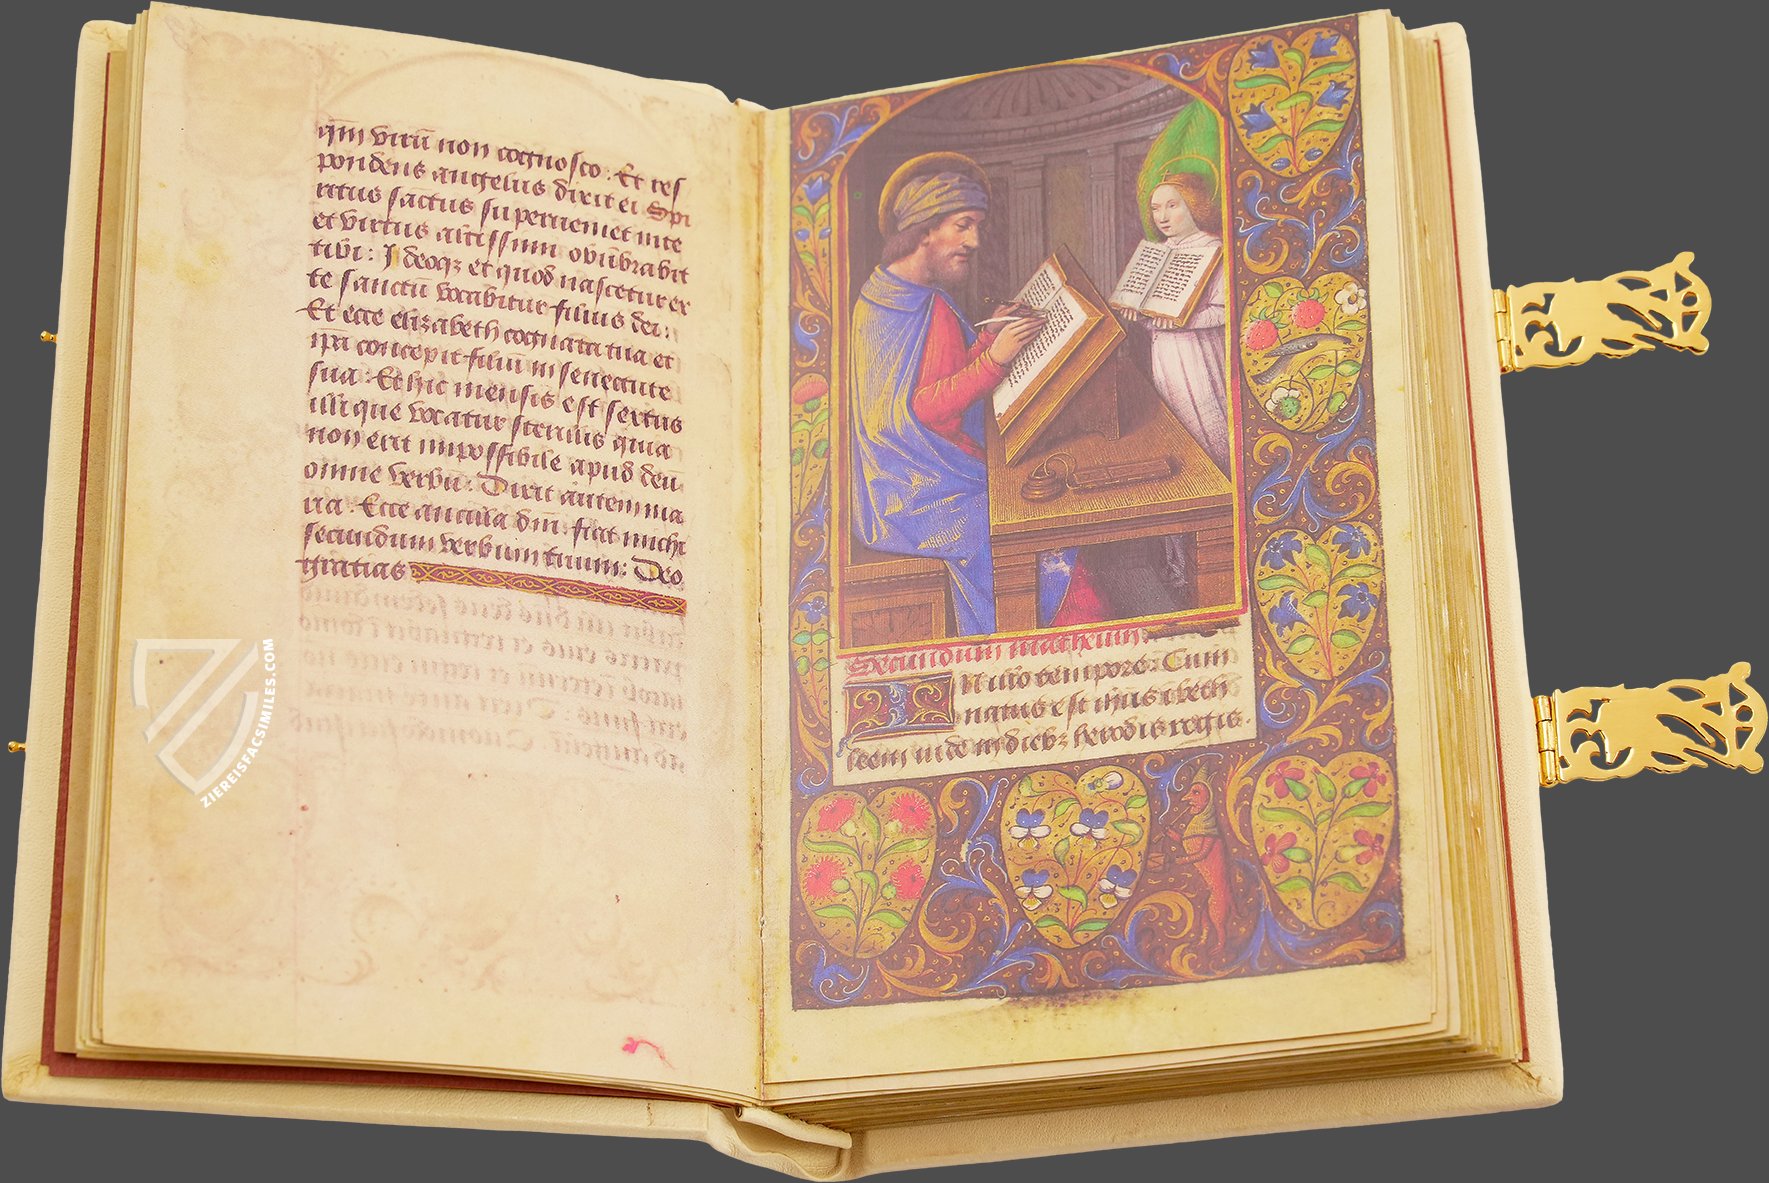 qm̄ virū non cognosco. Et res
pondens angelus dixit ei Spi
ritus sāctus superveniet in te
et virtus altissimi obūbrabit
tibi: Ideoqꝫ et quod nascetur ex
te sanctū vocabitur filius dei:
Et ecce elizabeth cognata tua et
ipa concepit filiū in senectute
sua. Et hic mensis est sextus
illi que vocatur sterilis quia
non erit impossibile apud deū
omne verbū. Dixit autem ma
ria. Ecce ancilla dn̄i fiat michi
secundum verbum tuum: Deo
gratias
Secundum matheum
In illo tempore: Cum
natus est ihūs i beth
leem iude in diebꝫ herodis regis.
ZIEREISFACSIMILES.COM